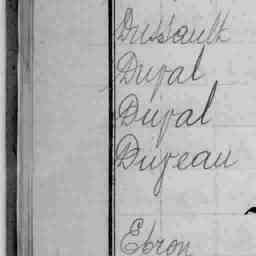 Dussault
Duval
Duval
Duveau
Ebron